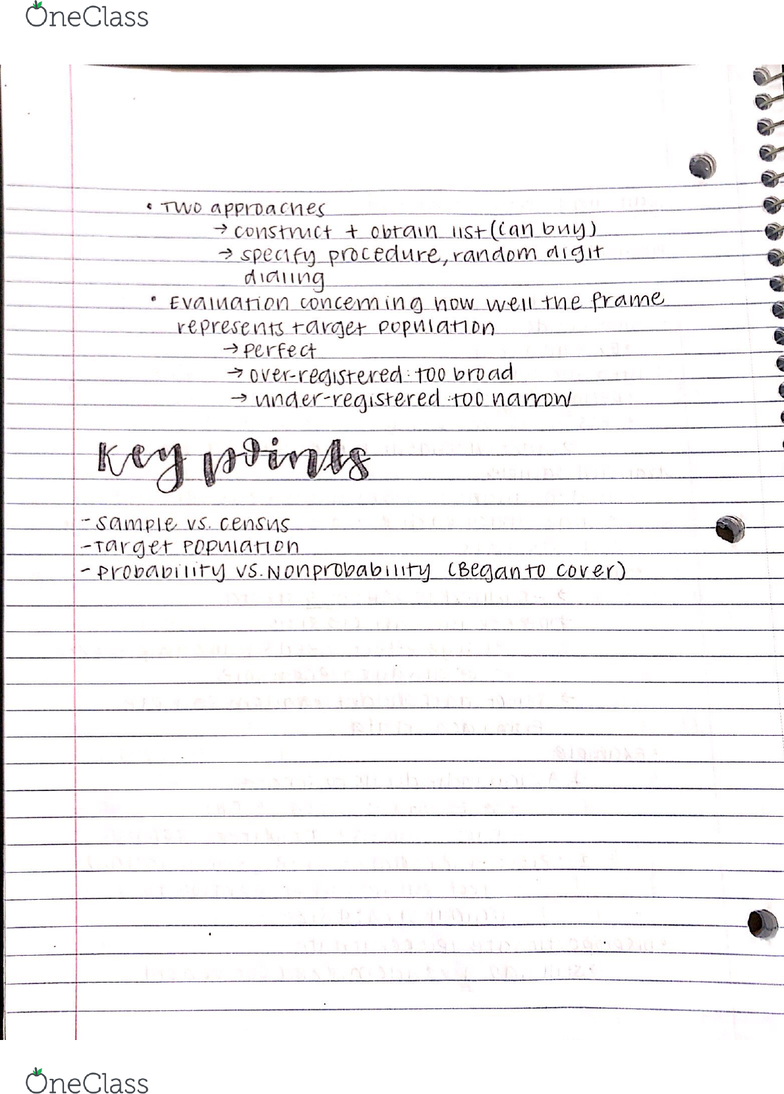 OneClass
• Two approaches
→ construct + obtain list (can buy)
→ specify procedure, random digit
dialing
• Evaluation concerning how well the frame
represents target population
→ perfect
→ over-registered: too broad
→ under-registered: too narrow
Key points
- Sample vs. census
- Target Population
- Probability vs. Nonprobability (Began to cover)
OneClass